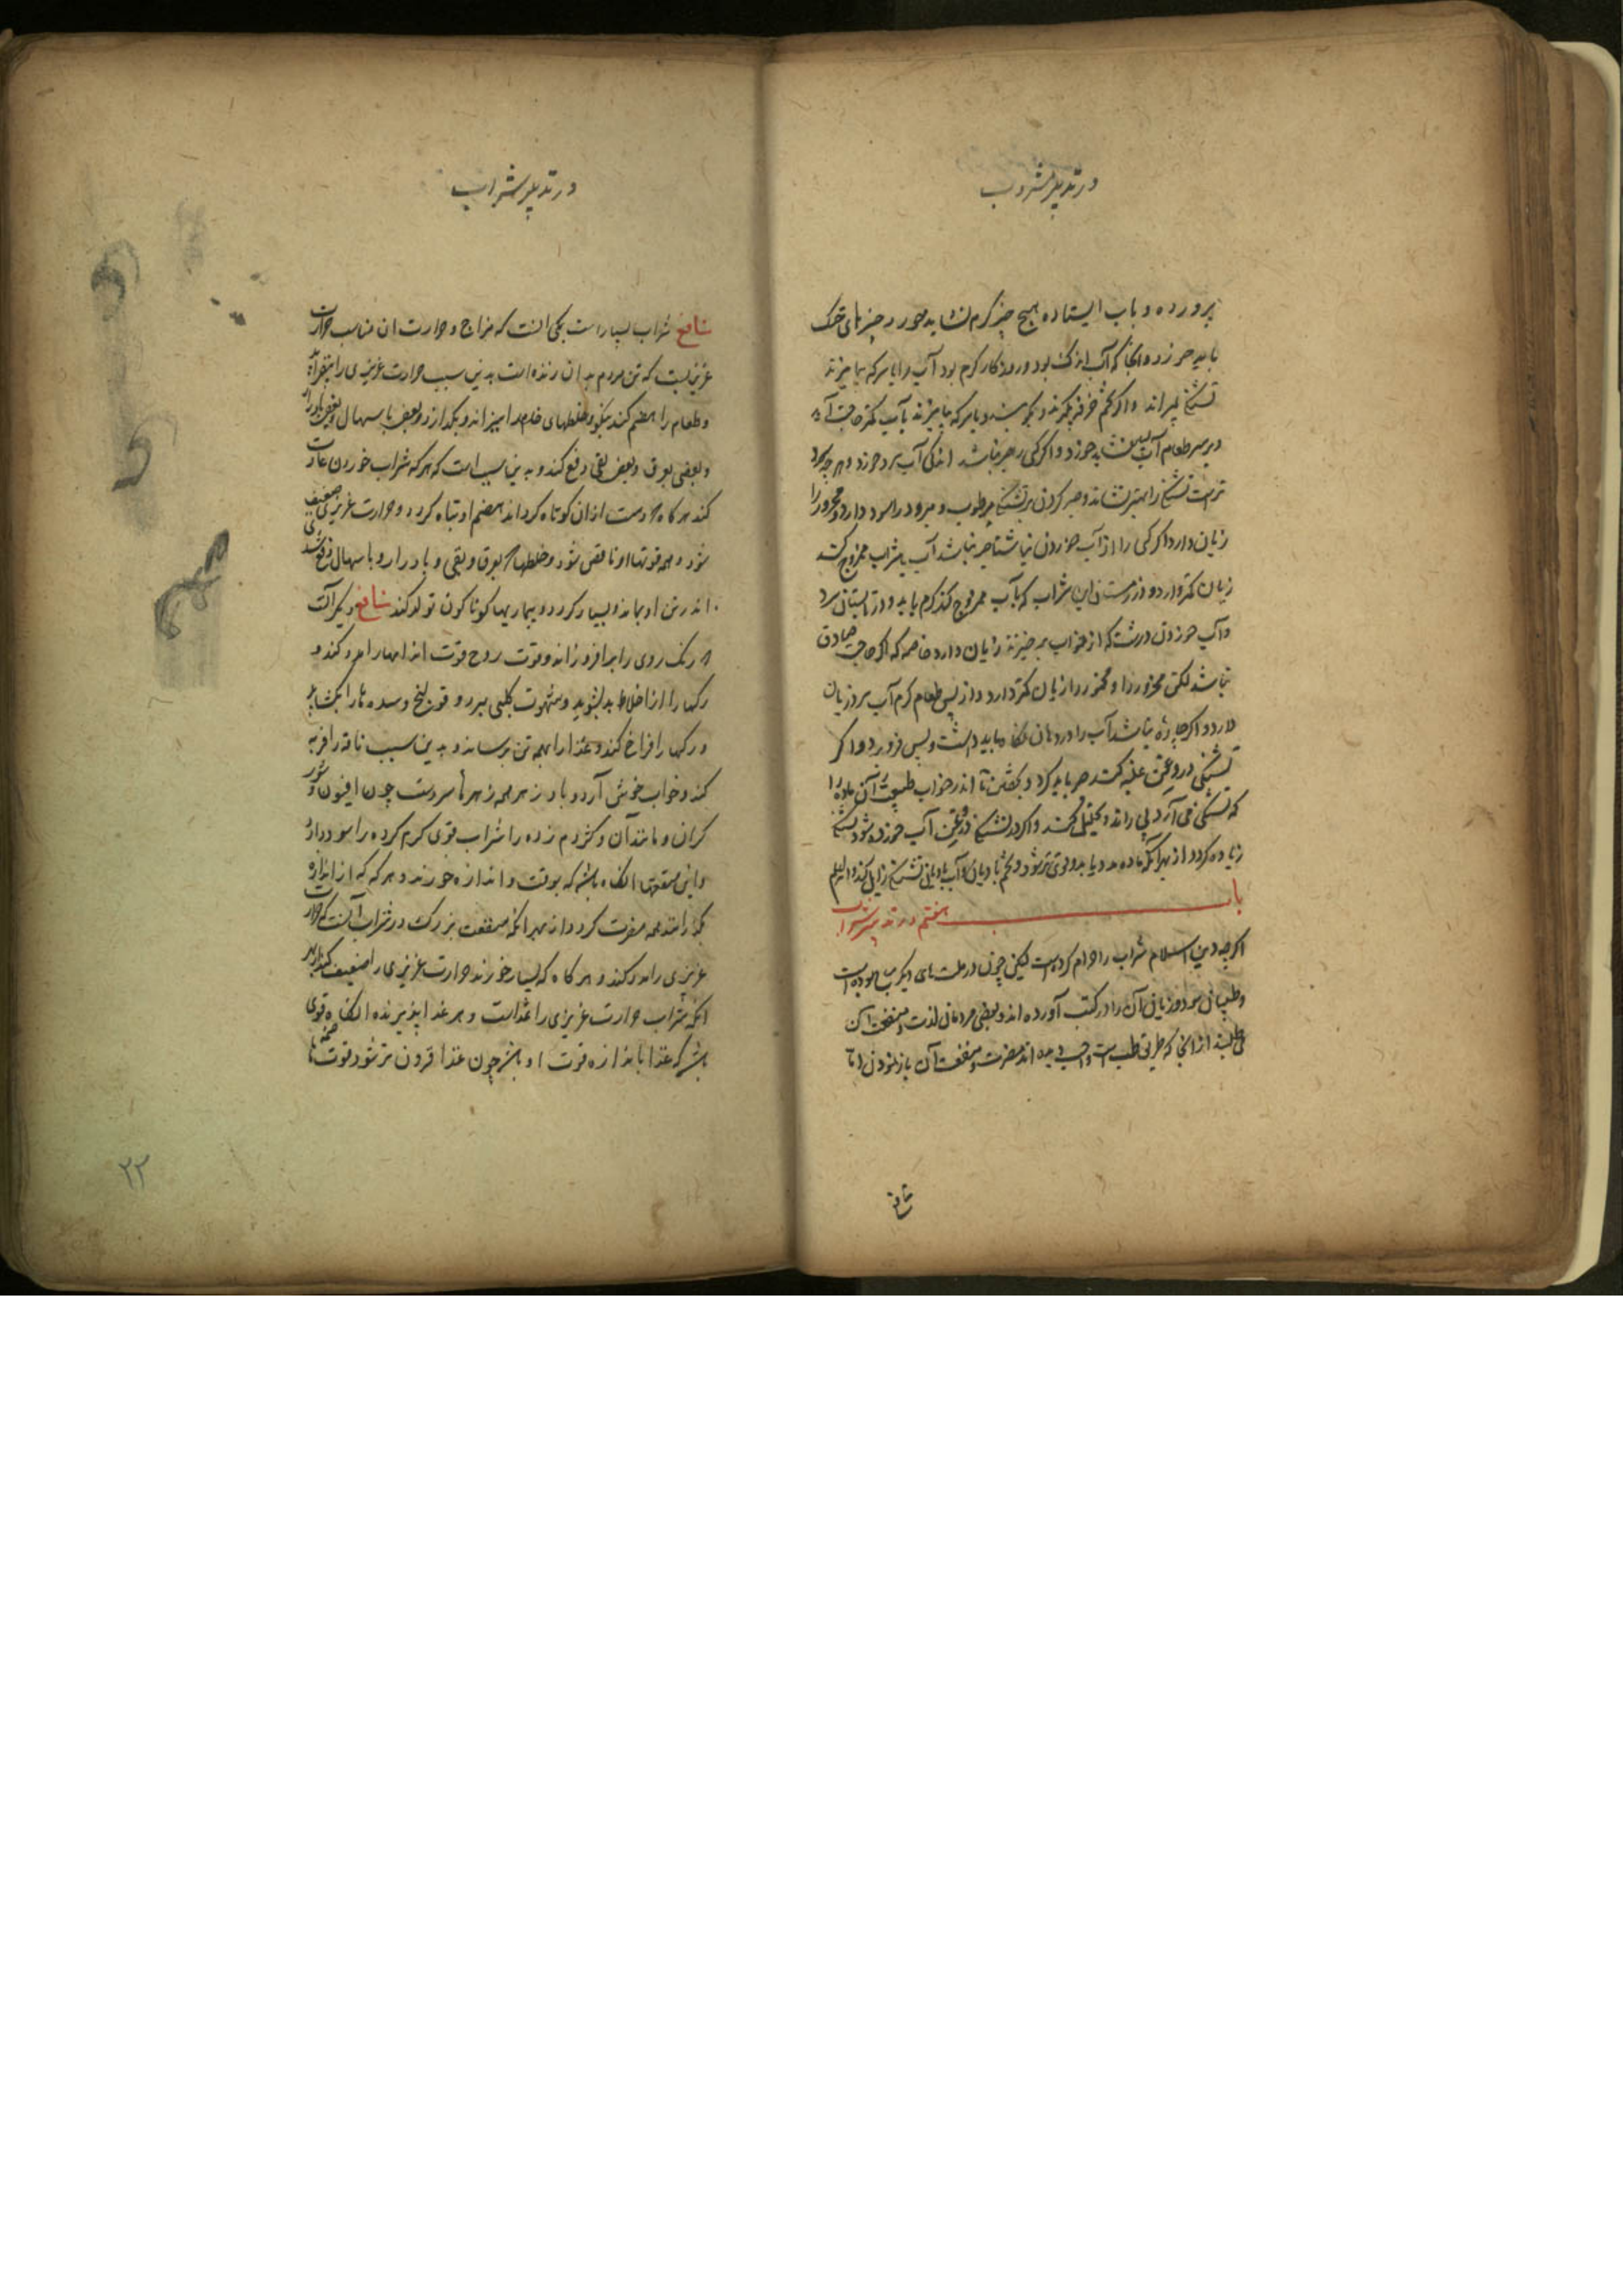 در تدبیر مشروب
پرورده و باب ایستاده هیچ چیز کرم نشاید خورد و چیزهای خنک
باید خورد و انجا که آب اندک بود و روزکار کرم بود آب را با سرکه بیامیزند
تشنکی بنشاند و اکر تخم خرفه بکیرند و بکوبند و با سرکه بیامیزند بآب کمتر حاجت آید
و بر سر طعام آب نشاید خورد و اکر کسی را صبر نباشد اندکی آب سرد خورد و هر چه سرد
تر است تشنکی را بهتر نشاند و صبر کردن بر تشنکی مرطوب و مبرود را سود دارد و محرور را
زیان دارد اکر کسی را از آب خوردن ناشتا صبر نباشد آب بشراب ممزوج کند
زیان کمتر دارد و در زمستان این شراب که بآب ممزوج کند کرم باید و در تابستان سرد
و آب خوردن در شب که از خواب برخیزند زیان دارد خاصه که اکر حاجت صادق
نباشد لکن محرور را و مخمور را زیان کمتر دارد و از پس طعام کرم آب سرد زیان
دارد و اکر چاره نباشد آب را در دهان نکاه باید داشت و پس فرو برد و اکر
تشنکی دروغین غلبه کند صبر باید کرد و بخفتن تا اندر خواب طبیعت آن ماده را
که تشنکی می آرد بپزاند و تحلیل کند و اکر در تشنکی دروغین آب خورده شود تشنکی
زیاده کردد از بهر آنکه ماده مدد یابد و قوی تر شود و تخم بادیان و آب بادیان تشنکی زایل کند و الله اعلم
باب هفتم در تدبیر شراب
اکر چه دین اسلام شراب را حرام کرده است لیکن چون در ملت های دیکر مباح بوده است
و طبیبان سود و زیان آن را در کتب آورده اند و بعضی مردمان لذت و منفعت آن
می طلبند از انجا که طریق طب است واجب دیده اند مضرت و منفعت آن باز نمودن اما
منافع
در تدبیر شراب
منافع شراب بسیار است یکی انست که مزاج و حرارت ان مناسب حرارت
غریزیست که تن مردم بدان زنده است بدین سبب حرارت غریزی را بیفزاید
و طعام را هضم کند نیکو و خلطهای خام را بپزاند و بکدازد و بعضی باسهال و بعضی بادرار
و بعضی بعرق و بعضی بقی دفع کند و بدین سبب است که هر که شراب خوردن عادت
کند هر کاه که دست ازان کوتاه کرداند هضم او تباه کردد و حرارت غریزی ضعیف
شود و همه قوتها او ناقص شود و خلطها که بعرق و بقی و بادرار و باسهال دفع شدی
اندر تن او بماند و بسیار کردد و بیماریها کوناکون تولد کند منافع دیکر آنست
که رنک روی را برافروزاند و قوت روح قوت اندامها را مدد کند و
رکها را از اخلاط بد بشوید و شهوت کلبی ببرد و قولنج و سده ها را بکشاید
و رکها را فراخ کند و غذا را بهمه تن برساند و بدین سبب ناقه را فربه
کند و خواب خوش آرد و پادزهر همه زهرها سردست چون افیون و شو
کران و مانند آن و کژدم زده را شراب قوی کرم کرده را سود دارد
و این منفعت انکاه باشد که بوقت و اندازه خورند و هر که که از اندازه
بکذرانند همه مضرت کردد از بهر انکه منفعت بزرک در شراب آنست که حرارت
غریزی را مدد کند و هر کاه که بسیار خورند حرارت غریزی را ضعیف کند از بهر
انکه شراب حرارت غریزی را غذاست و هر غذا پذیرنده انکاه قوی
باشد که غذا باندازه قوت او باشد چون غذا افزون تر شود قوت هاضمه
۲۲